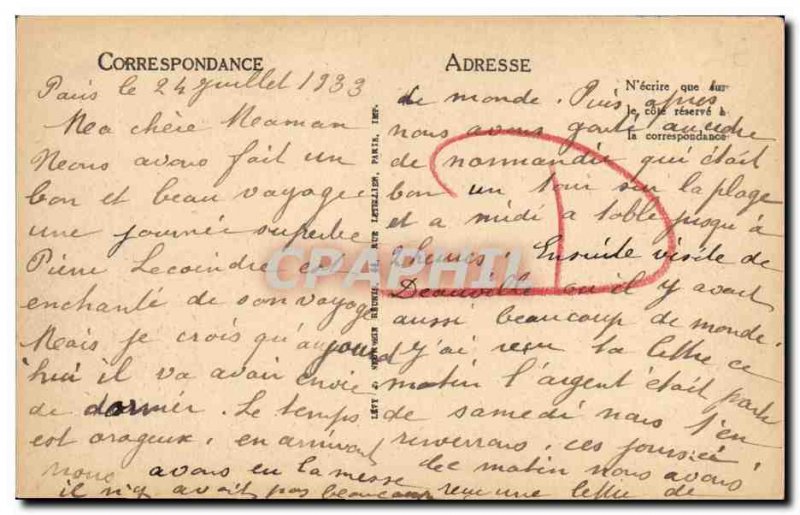 CORRESPONDANCE
Paris le 24 juillet 1933
Ma chère Maman
Nous avons fait un
bon et beau voyage
une journée superbe
Pierre Lecoindre est
enchanté de son voyage
Mais je crois qu'aujourd
'hui il va avoir envie
de dormir. Le temps
est orageux, en arrivant
nous avons eu la messe
il n'y avait pas beaucoup
LEVY & NEURDEIN REUNIS, 44, RUE LETELLIER, PARIS, IMP.
ADRESSE
N'écrire que sur
le côté réservé à
la correspondance
de monde. Puis après
nous avons gouté au cidre
de normandie qui était
bon un tour sur la plage
et a midi a table jusqu'à
2 heures. Ensuite visite de
Deauville ou il y avait
aussi beaucoup de monde.
J'ai reçu ta lettre ce
matin l'argent était parti
de samedi nous t'en
reverrons, ces jours ci
Ce matin nous avons
reçu une lettre de
CPARPHIL